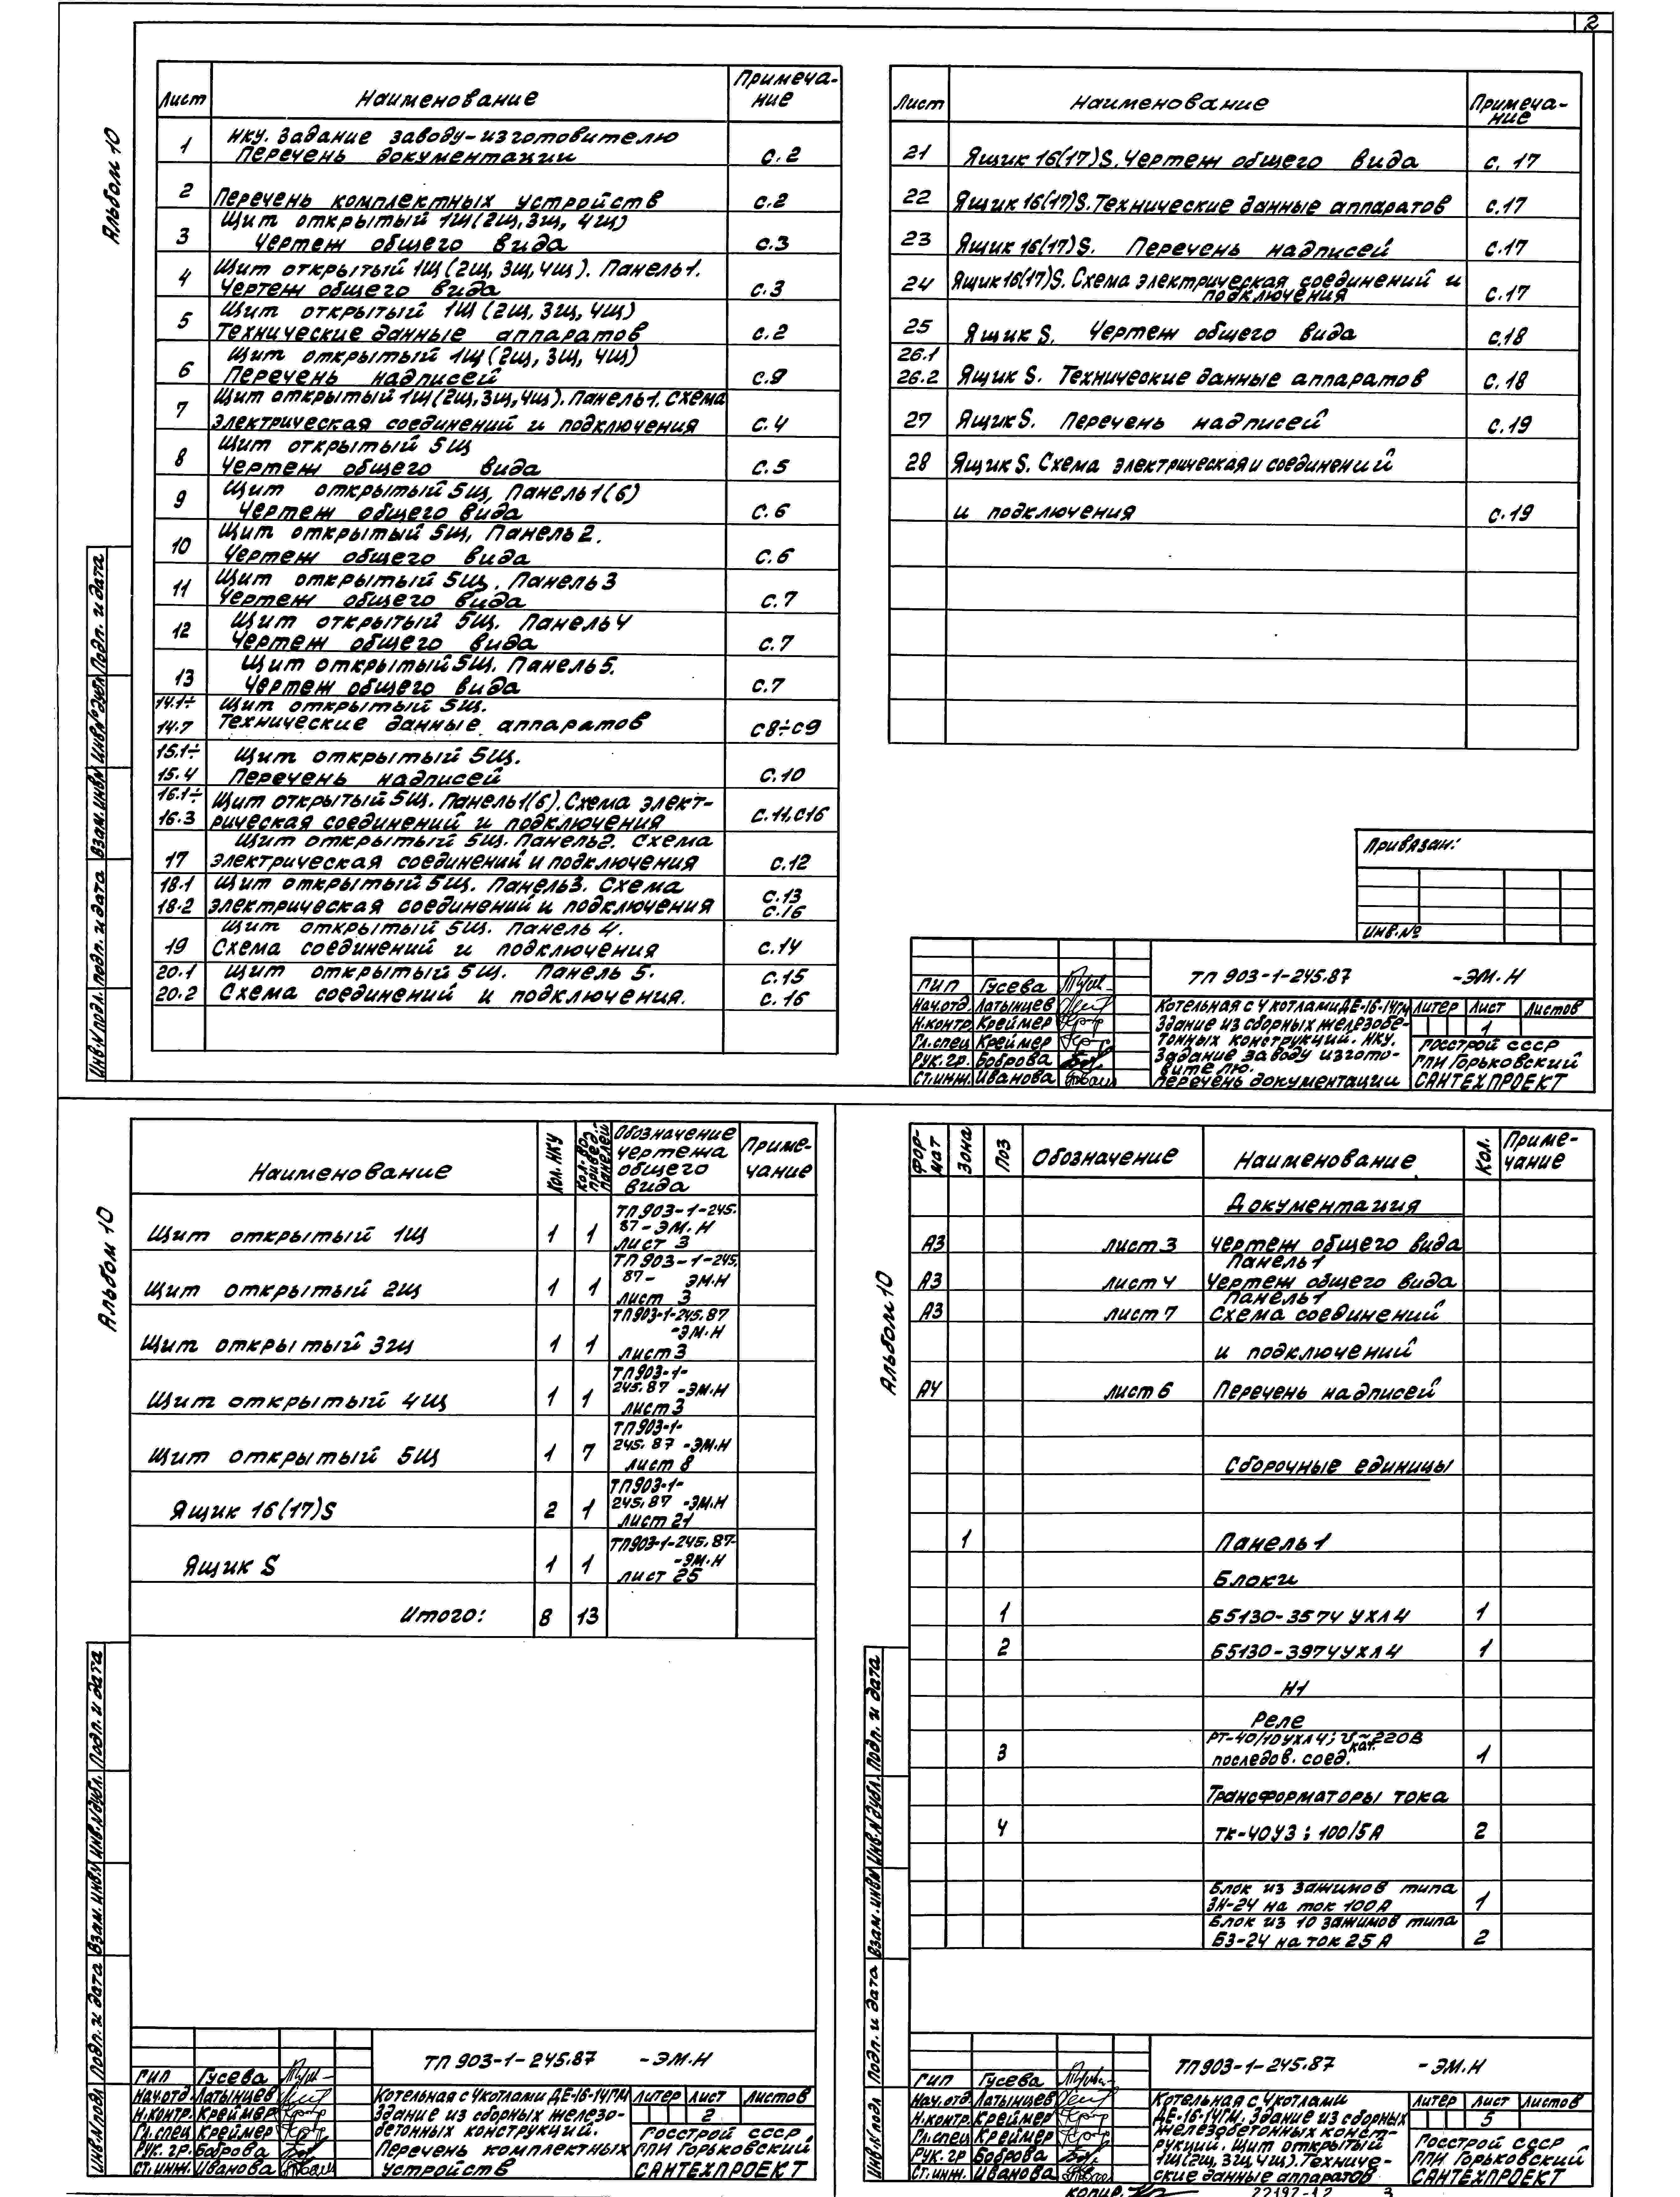 2
Альбом 10
Лист Наименование Примеча-
ние
1 НКУ. Задание заводу-изготовителю
Перечень документации с.2
2 Перечень комплектных устройств с.2
3 Щит открытый 1Щ(2щ,3щ, 4щ)
Чертеж общего вида с.3
4 Щит открытый 1Щ(2щ, 3щ,4щ). Панель1.
Чертеж общего вида с.3
5 Щит открытый 1Щ(2щ, 3щ,4щ)
Технические данные аппаратов с.2
6 Щит открытый 1щ(2щ, 3щ, 4щ)
Перечень надписей с.9
7 Щит открытый 1щ(2щ,3щ,4щ). Панель1. Схема
электрическая соединений и подключения с.4
8 Щит открытый 5щ
Чертеж общего вида с.5
9 Щит открытый 5щ, Панель1(6)
Чертеж общего вида с.6
10 Щит открытый 5щ, Панель 2.
Чертеж общего вида с.6
11 Щит открытый 5щ. Панель 3
Чертеж общего вида с.7
12 Щит открытый 5щ. Панель4
Чертеж общего вида с.7
13 Щит открытый 5щ. Панель5.
Чертеж общего вида с.7
14.1÷ Щит открытый 5щ.
14.7 Технические данные аппаратов с8÷с9
15.1÷ Щит открытый 5щ.
15.4 Перечень надписей с.10
16.1÷ Щит открытый 5щ. Панель1(6). Схема элект-
16.3 рическая соединений и подключения с.11,с16
Щит открытый 5щ. Панель2. Схема
17 электрическая соединений и подключения с.12
18.1 Щит открытый 5щ. Панель3. Схема с.13
18.2 электрическая соединений и подключения с.16
Щит открытый 5щ. Панель 4.
19 Схема соединений и подключения с.14
20.1 Щит открытый 5щ. Панель 5. с.15
20.2 Схема соединений и подключения. с.16
Лист Наименование Примеча-
ние
21 Ящик 16(17)S. Чертеж общего вида с. 17
22 Ящик 16(17)S. Технические данные аппаратов с.17
23 Ящик 16(17)S. Перечень надписей с.17
24 Ящик 16(17)S. Схема электрическая соединений и
подключения с.17
25 Ящик S. Чертеж общего вида с.18
26.1
26.2 Ящик S. Технические данные аппаратов с.18
27 Ящик S. Перечень надписей с.19
28 Ящик S. Схема электрическая и соединений
и подключения с.19
Привязан:
Инв.№
ТП 903-1-245.87 -ЭМ.Н
ГИП Гусева
Нач.отд. Латынцев
Н.контр. Креймер
Гл.спец. Креймер
Рук. гр. Боброва
Ст.инж. Иванова
Котельная с 4 котлами ДЕ-16-14ГМ
Здание из сборных железобе-
тонных конструкций. НКУ.
Задание заводу изгото-
вителю.
Перечень документации
Литер Лист Листов
1
Госстрой СССР
ГПИ Горьковский
САНТЕХПРОЕКТ
Инв.№ подл. Подп. и дата Взам. инв.№ Инв.№ дубл. Подп. и дата
Альбом 10
Наименование Кол. НКУ Кол-во привед. панелей Обозначение
чертежа
общего
вида Приме-
чание
Щит открытый 1щ 1 1 ТП 903-1-245.
87-ЭМ.Н
лист 3
Щит открытый 2щ 1 1 ТП 903-1-245.
87- ЭМ.Н
лист 3
Щит открытый 3щ 1 1 ТП903-1-245.87
-ЭМ.Н
лист3
Щит открытый 4щ 1 1 ТП903-1-
245.87 -ЭМ.Н
лист3
Щит открытый 5щ 1 7 ТП903-1-
245.87 -ЭМ.Н
лист 8
Ящик 16(17)S 2 1 ТП903-1-
245.87 -ЭМ.Н
лист 21
Ящик S 1 1 ТП903-1-245.87-
-ЭМ.Н
лист 25
Итого: 8 13
ТП 903-1-245.87 -ЭМ.Н
ГИП Гусева
Нач.отд. Латынцев
Н.контр. Креймер
Гл.спец. Креймер
Рук. гр. Боброва
Ст.инж. Иванова
Котельная с 4котлами ДЕ-16-14ГМ
Здание из сборных железо-
бетонных конструкций.
Перечень комплектных
устройств
Литер Лист Листов
2
Госстрой СССР
ГПИ Горьковский
САНТЕХПРОЕКТ
Инв.№ подл Подп. и дата Взам. инв.№ Инв.№ дубл. Подп. и дата
Альбом 10
Фор-
мат Зона Поз Обозначение Наименование Кол. Приме-
чание
Документация
А3 лист 3 Чертеж общего вида
Панель 1
А3 лист 4 Чертеж общего вида
Панель1
А3 лист 7 Схема соединений
и подключений
А4 лист 6 Перечень надписей
Сборочные единицы
1 Панель 1
Блоки
1 Б5130-3574 УХЛ4 1
2 Б5130-3974УХЛ4 1
Н1
Реле
РТ-40/10УХЛ4; U кат. ~220В
3 последов. соед. 1
Трансформаторы тока
4 ТК-40У3; 100/5А 2
Блок из зажимов типа
ЗН-24 на ток 100А 1
Блок из 10 зажимов типа
БЗ-24 на ток 25А 2
ТП903-1-245.87 -ЭМ.Н
ГИП Гусева
Нач. отд. Латынцев
Н.контр. Креймер
Гл.спец. Креймер
Рук. гр Боброва
Ст.инж. Иванова
Котельная с 4котлами
ДЕ-16-14ГМ. Здание из сборных
железобетонных конст-
рукций. Щит открытый
1щ(2щ, 3щ, 4щ). Техниче-
ские данные аппаратов
Литер Лист Листов
5
Госстрой СССР
ГПИ Горьковский
САНТЕХПРОЕКТ
Инв.№ подл Подп. и дата Взам. инв.№ Инв.№ дубл. Подп. и дата
Копир. 22197-12 3